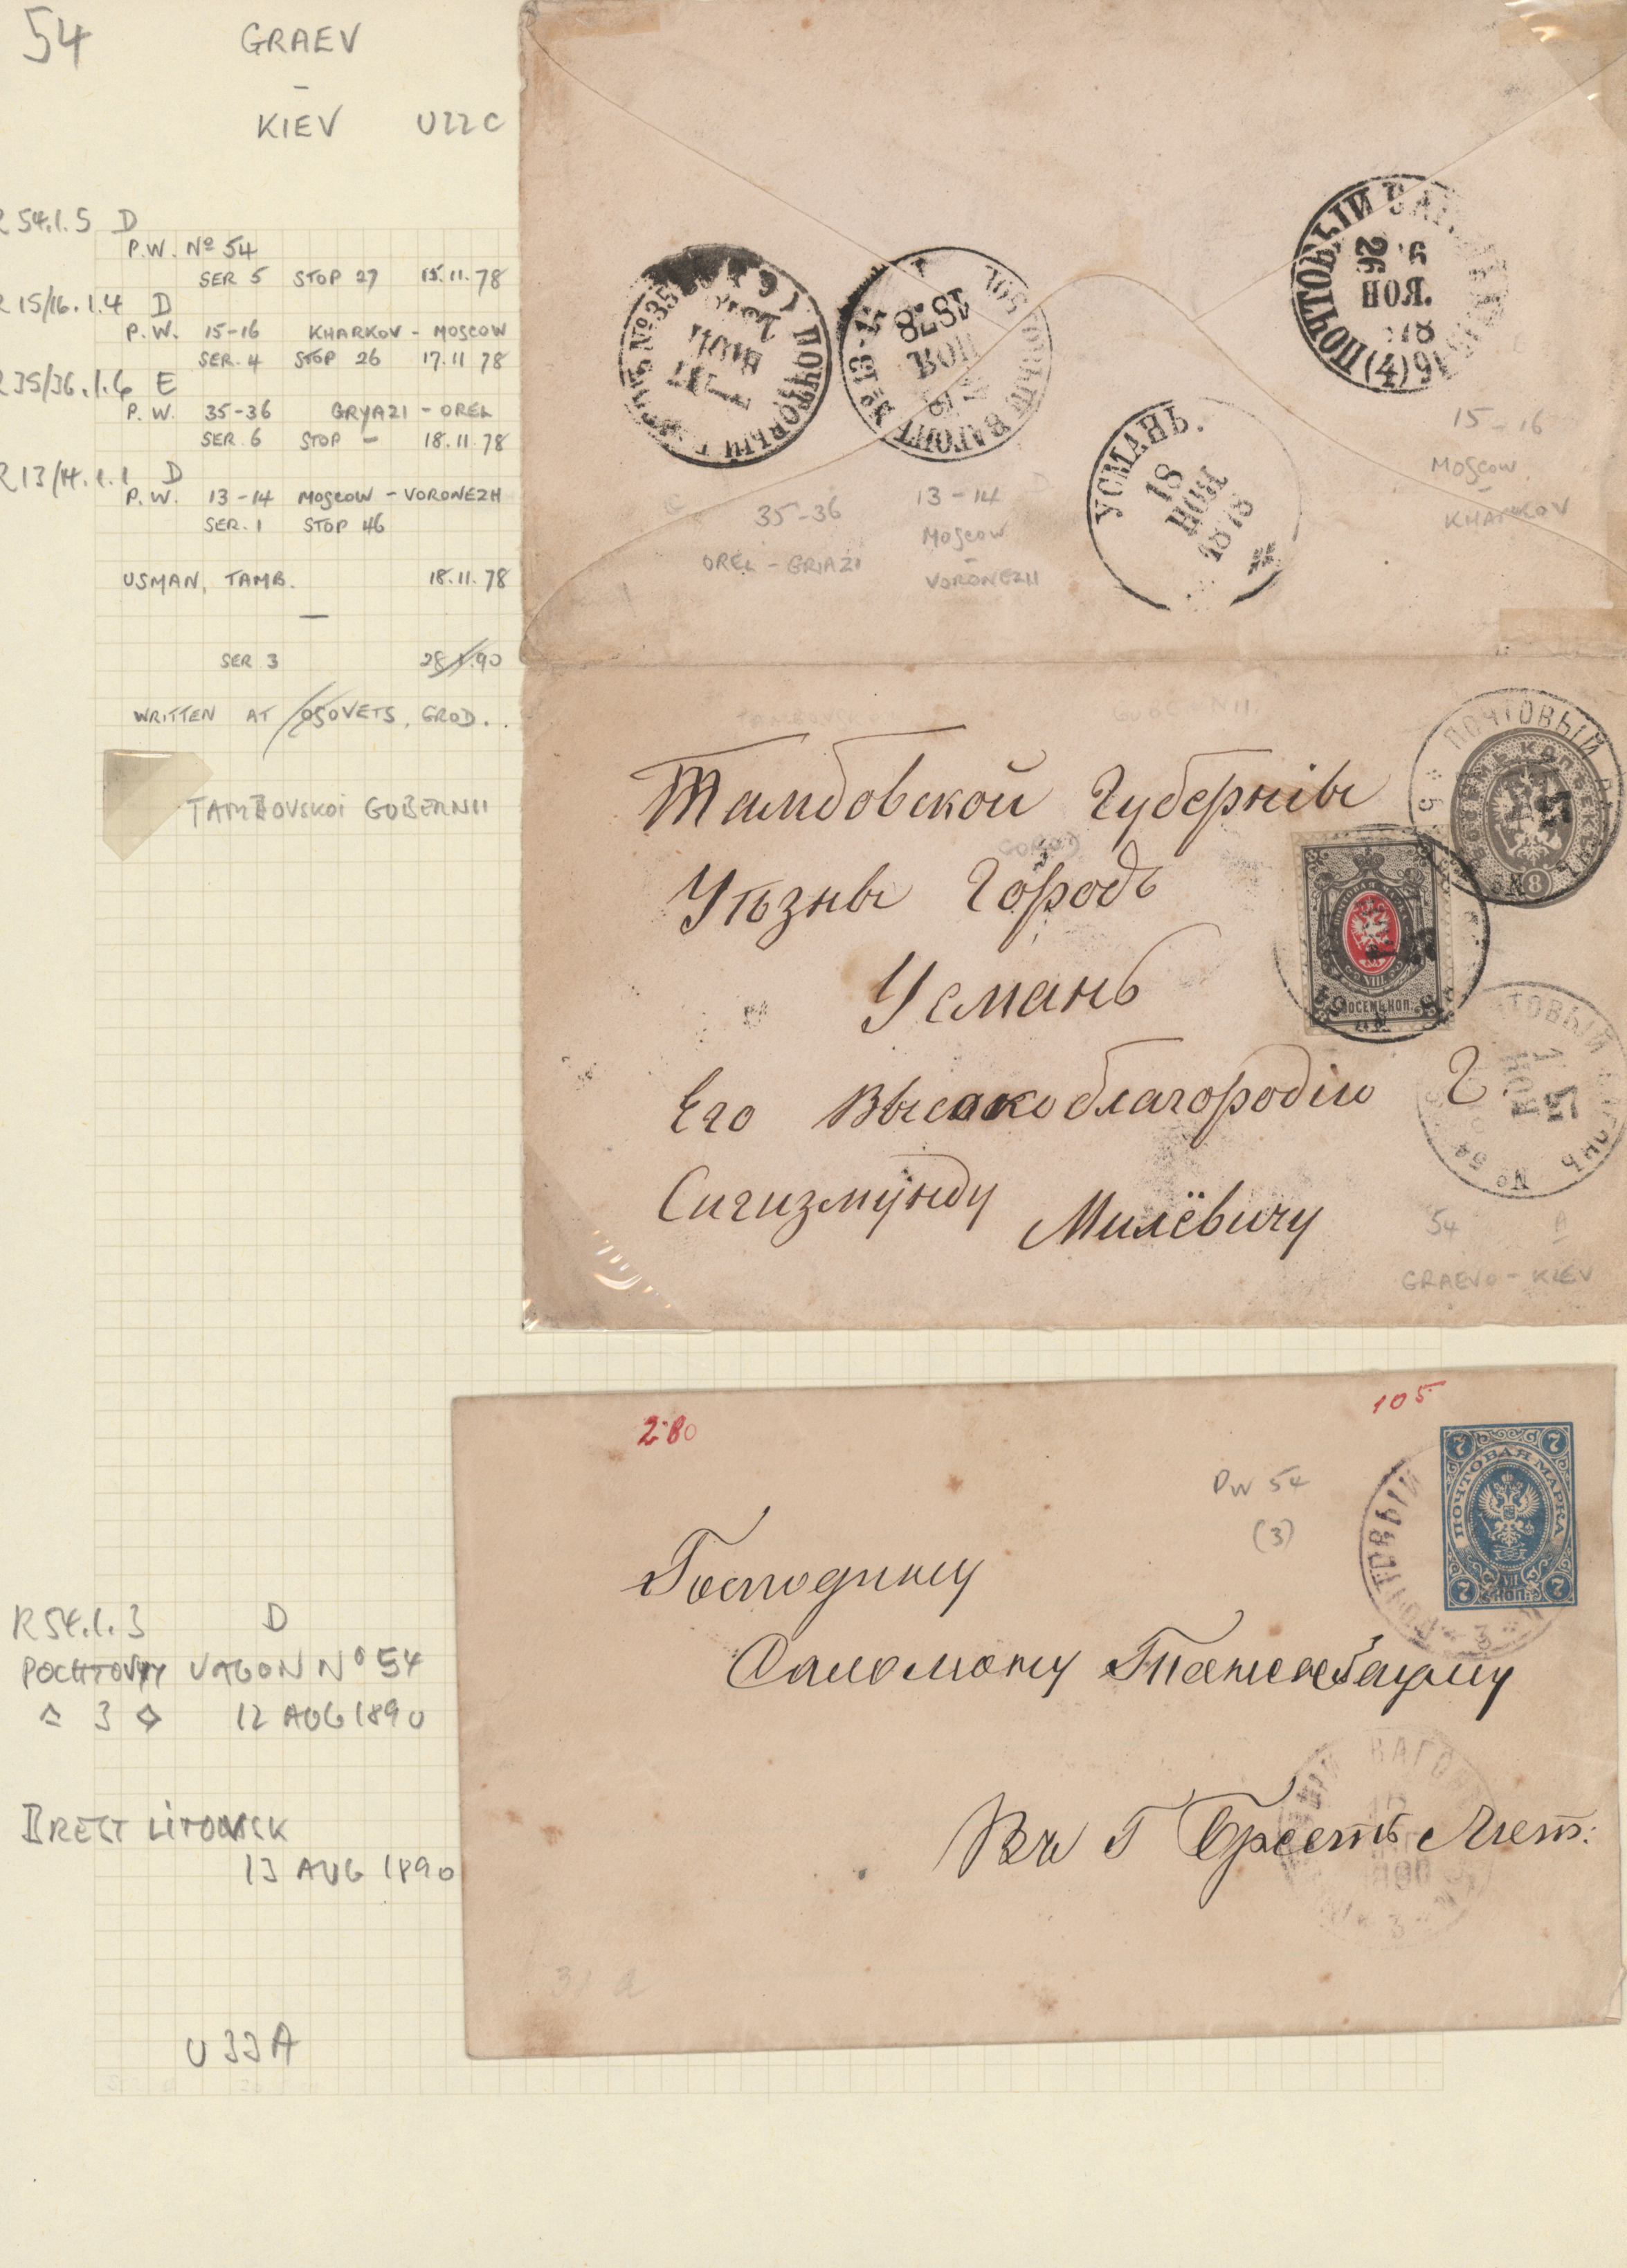 54 GRAEV
-
KIEV U22C
R 54.1.5 D
P.W. Nº 54
SER 5 STOP 27 15.11.78
R 15/16.1.4 D
P.W. 15-16 KHARKOV - MOSCOW
SER. 4 STOP 26 17.11 78
R 35/36.1.6 E
P.W. 35-36 GRYAZI - OREL
SER. 6 STOP - 18.11.78
R 13/14.1.1 D
P.W. 13-14 MOSCOW - VORONEZH
SER. 1 STOP 46
USMAN, TAMB. 18.11.78
SER 3 28.1.90
WRITTEN AT OSOVETS, GROD.
TAMBOVSKOI GUBERNII
ПОЧТОВЫЙ
№35
ПОЧТОВЫЙ ВАГОНЪ №13-14
НОЯ
1878
УСМАНЬ.
18
НОЯ
1878
ПОЧТОВЫЙ
26
НОЯ.
(4)
35-36
OREL - GRIAZI
13-14
MOSCOW
-
VORONEZH
15-16
MOSCOW
-
KHARKOV
GUBERNII.
Тамбовской Губернiи
GOROD
Уѣзны Городъ
Усмань
Его Высокоблагородiю Г
Сигизмунду Милёвичу
ПОЧТОВЫЙ
8
ВОСЕМЬ КОП.
ПОЧТОВЫЙ ВАГОНЪ № 54
15
НОЯ
54 A
GRAEVO - KIEV
280
105
PW 54
(3)
ПОЧТОВАЯ МАРКА
7 7
7 7
VII
КОП.
ПОЧТОВЫЙ
3
Господину
Саломону Тененбауму
Въ Г Брестъ Лит:
ВАГОНЪ
3
R 54.1.3 D
POCHTOVYY VAGON Nº 54
3 12 AUG 1890
BREST LITOVSK
13 AUG 1890
U 33A